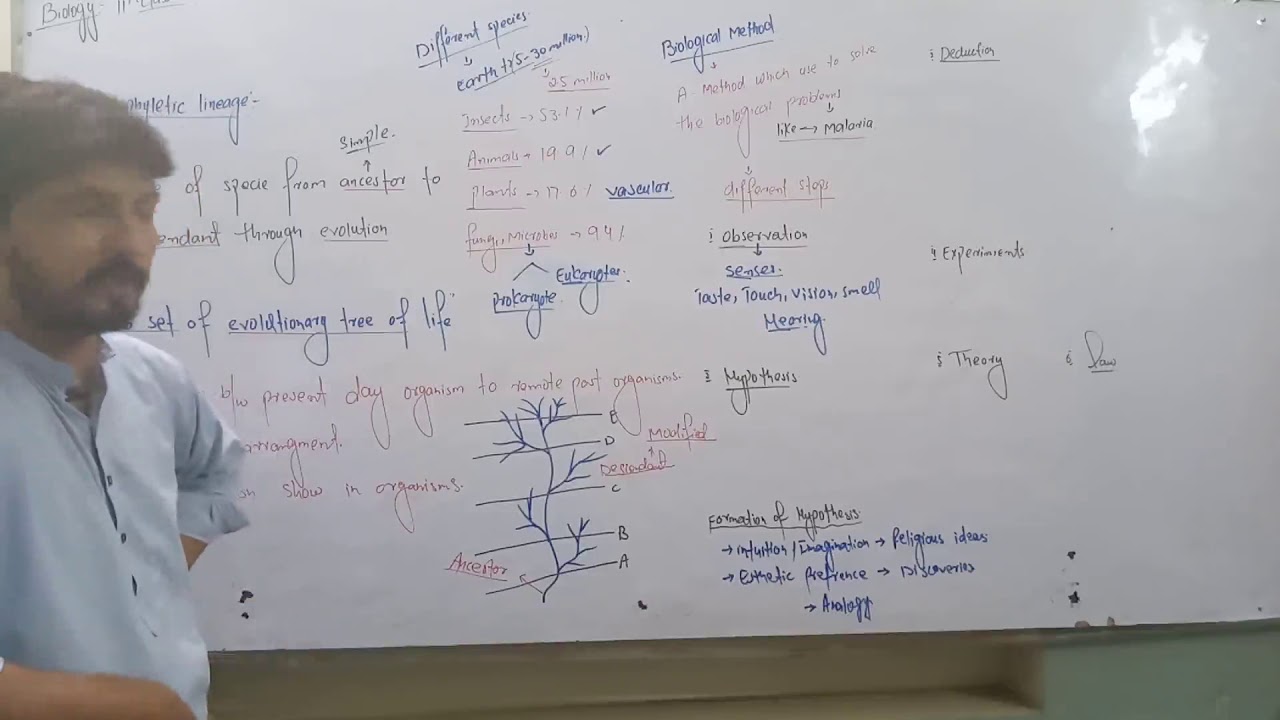 Biology:-
phyletic lineage:-
Simple.
of specie from ancestor to
endant through evolution
set of evolutionary tree of life
b/w present day organism to remote past organisms.
arrangment.
show in organisms.
Different species.
earth → (5-30 million.)
2.5 million
Insects → 53.1% ✓
Animals → 19.9% ✓
Plants → 17.6% vascular.
fungi, Microbes → 9.4%
Prokaryote. Eukaryotes.
E
D
C
B
A
Modified
Descendant
Ancestor
Biological Method
A Method which use to solve
the biological problems
like → Malaria
different steps
i Observation
Senses.
Taste, Touch, Vision, smell
Hearing.
i Hypothesis
Formation of Hypothesis.
→ intuition/Imagination → Religious ideas
→ Esthetic prefrence → Discoveries
→ Analogy
i Deduction
i Experiments
i Theory
i Law